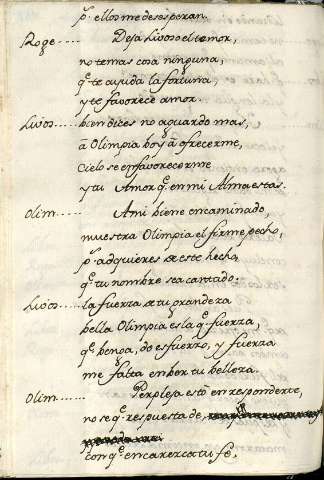 pᵒ. ello me desesperan.
Roge..... Deja Liuso el temor,
no temas cosa ninguna,
q̃. te ayuda la fortuna,
y te favorece amor.
Liuso..... bien dices no aguardo mas,
â Olimpia boy â ofrecerme,
Cielo se en favorecerme
y tu Amor q̃. en mi Alma estas.
Olim...... Ami biene encaminado,
muestra Olimpia el firme pecho,
pᵒ. adquieres de este hecho,
q̃. tu nombre sea cantado.
Liuso..... la fuerza de tu grandeza
bella Olimpia es la q̃. fuerza,
q̃. benga, do esfuerzo, y fuerza
me falta en ber tu belleza.
Olim...... Perpleja estô en responderte,
no se q̃. respuesta de,
con q̃. encarezca tu fe,